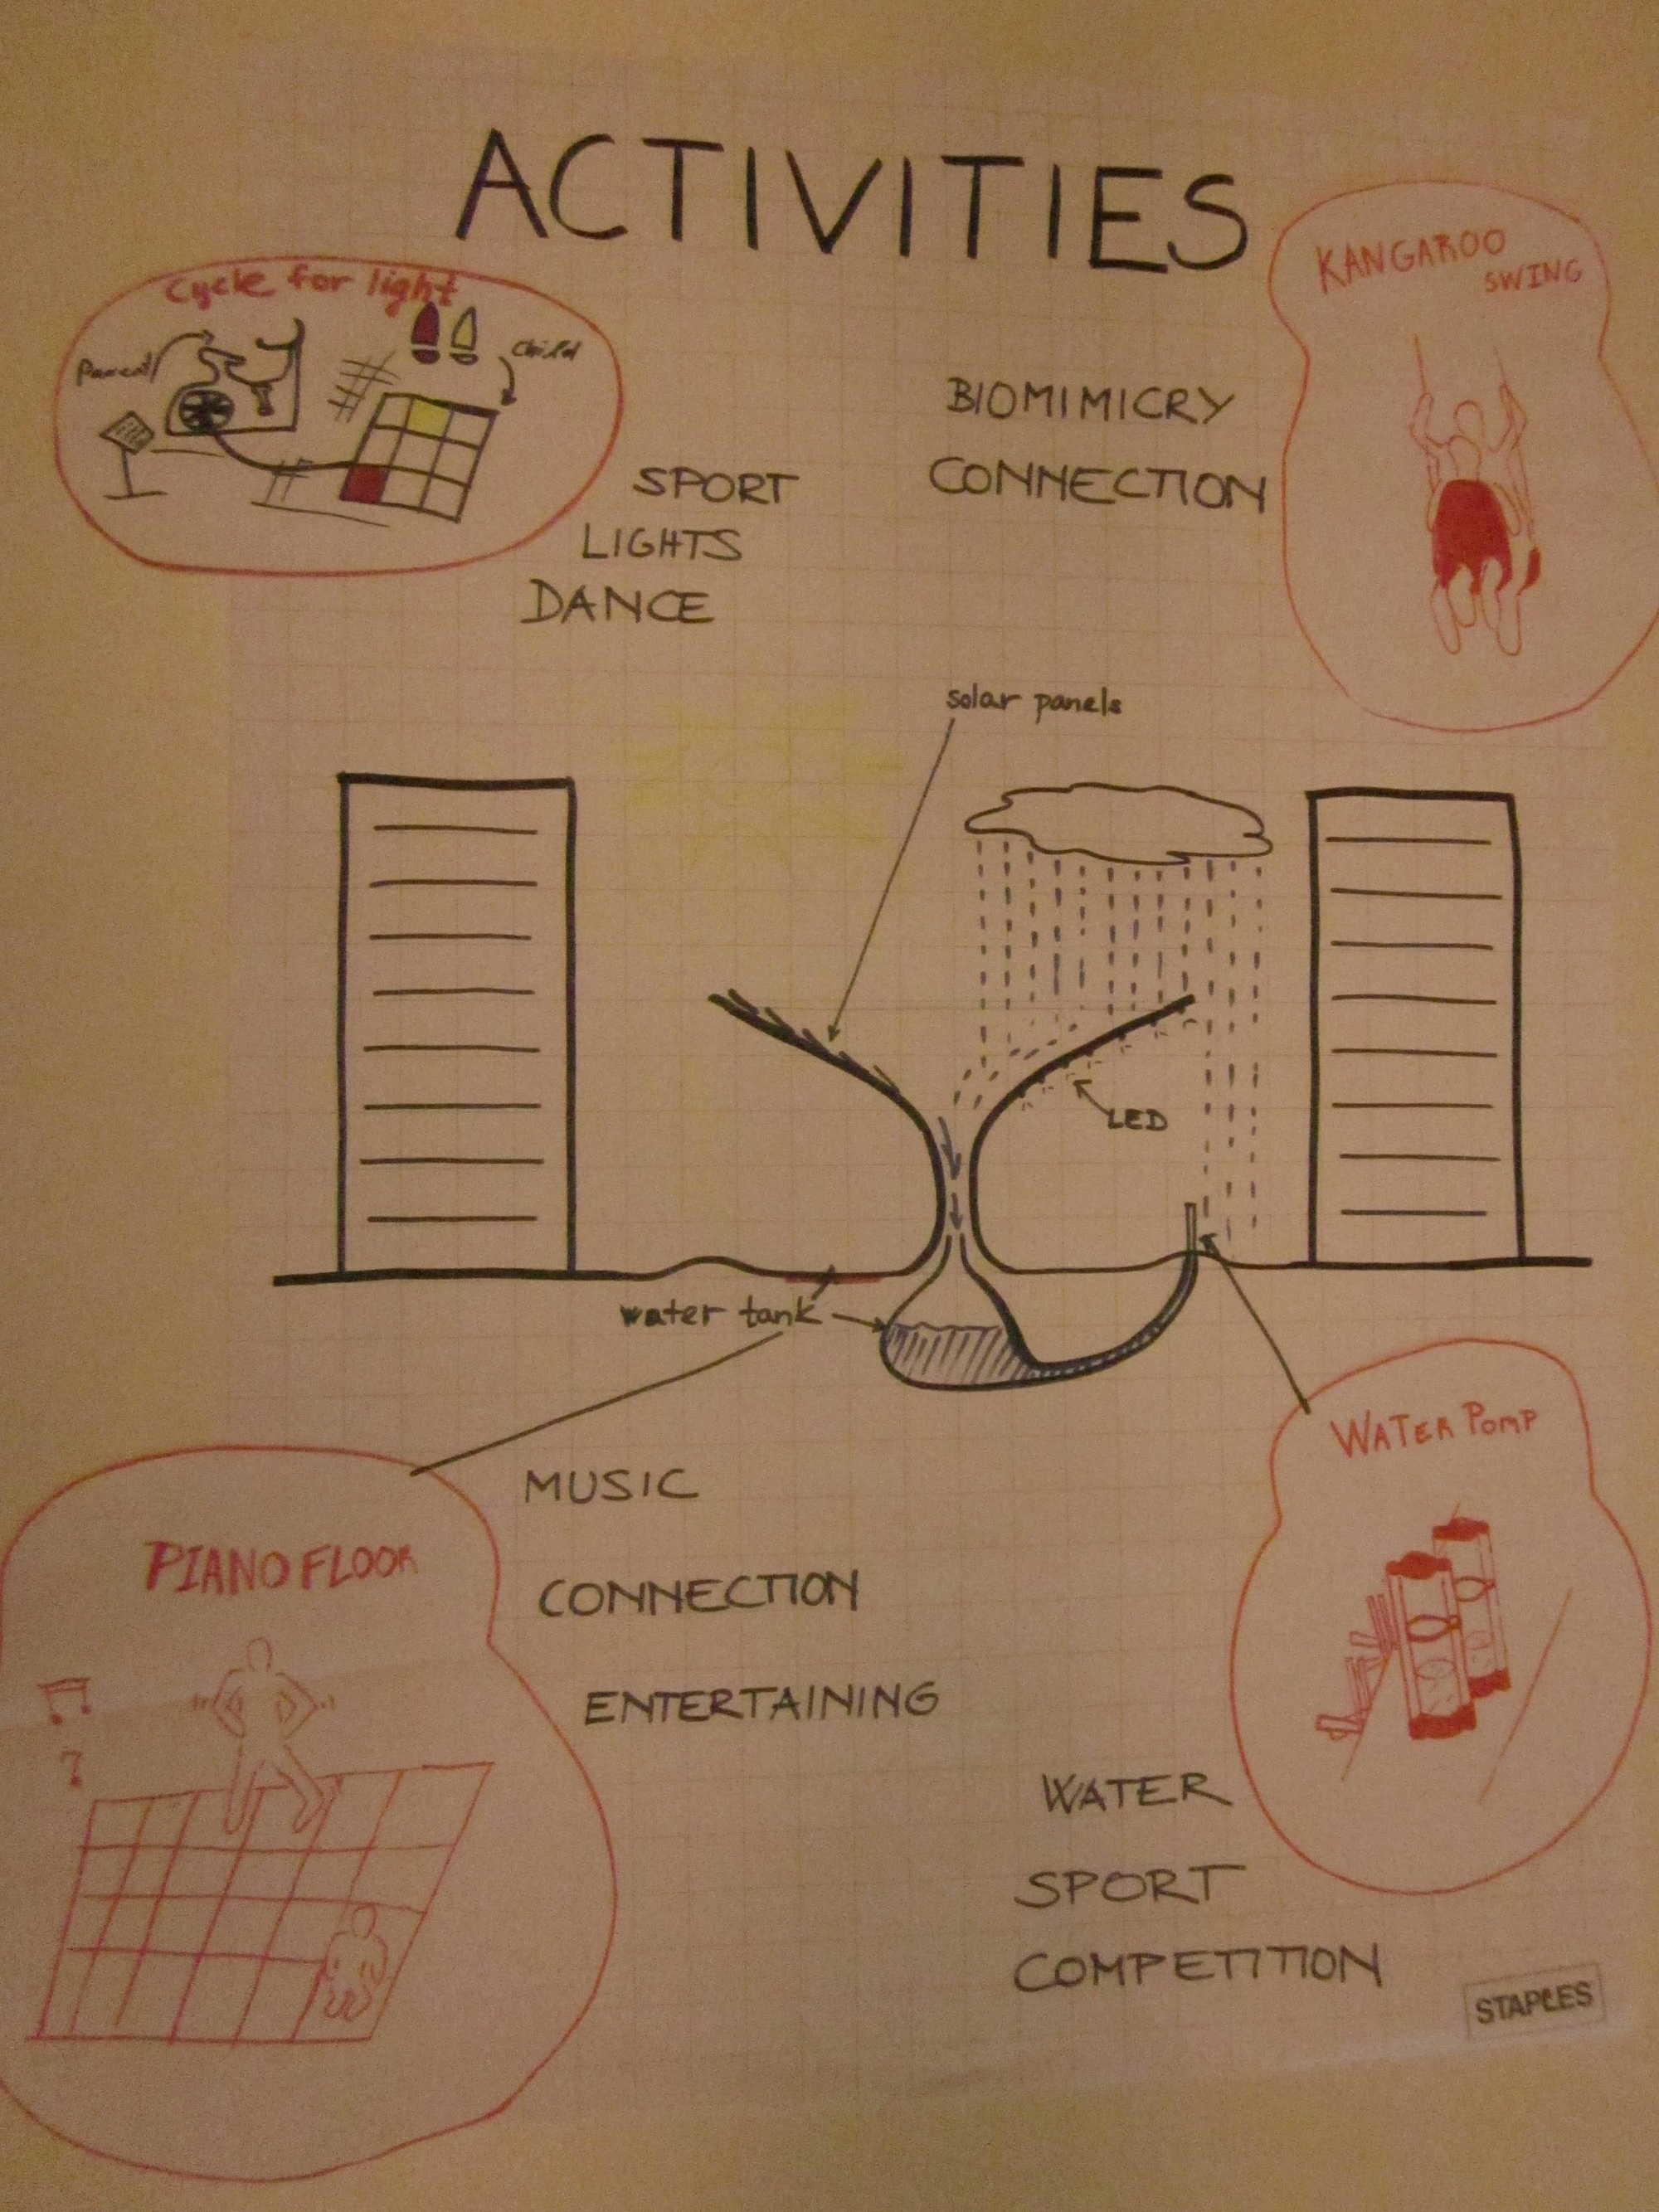 ACTIVITIES
Cycle for light
Parent
Child
KANGAROO
SWING
BIOMIMICRY
CONNECTION
SPORT
LIGHTS
DANCE
solar panels
LED
water tank
WATER POMP
MUSIC
PIANO FLOOR
CONNECTION
ENTERTAINING
WATER
SPORT
COMPETITION
STAPLES